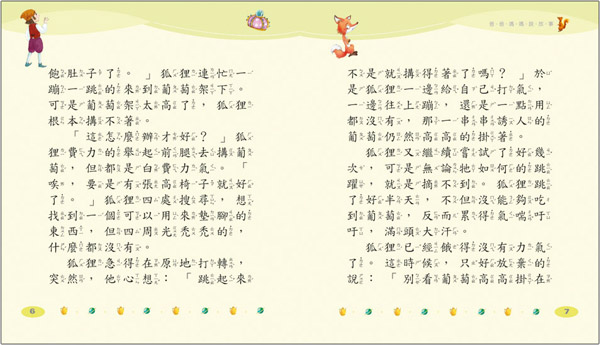 飽肚子了。」狐狸連忙一
蹦一跳的來到葡萄架下。
可是葡萄架太高了，狐狸
根本搆不著。
「這怎麼辦才好？」狐
狸費力的舉起前腿去搆葡
萄，但都是白費力氣。「
唉，要是有張高椅子就好
了。」狐狸四處搜尋，想
找到一個可以用來墊腳的
東西，但四周光禿禿的，
什麼都沒有。
狐狸急得在原地打轉，
突然，他心想：「跳起來
6
爸爸媽媽說故事
不是就搆得著了嗎？」於
是狐狸一邊給自己打氣，
一邊往上蹦，還是一點用
都沒有，那一串串誘人的
葡萄仍然高高的掛著。
狐狸又繼續嘗試了好幾
次，可是無論牠如何的跳
躍，就是摘不到。狐狸跳
了好半天，不但沒能夠吃
到葡萄，反而累得氣喘吁
吁，滿頭大汗。
狐狸已經餓得沒有力氣
了。這時候，只好放棄的
說：「別看葡萄高高掛在
7